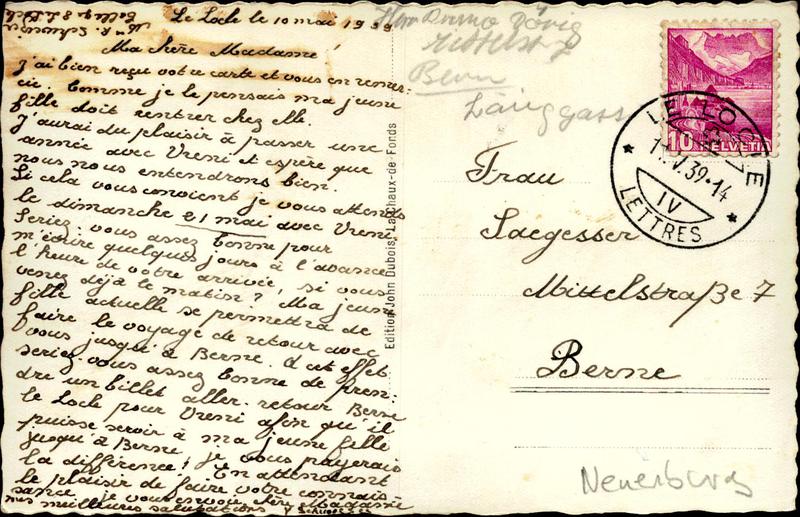 Le Locle le 10 mai 1939
Ma chère Madame
J'ai bien reçu votre carte et vous en remer-
cie. Comme je le pensais ma jeune
fille doit rentrer chez elle.
J'aurai du plaisir à passer une
année avec Vreni et espère que
nous nous entendrons bien.
Si cela vous convient je vous attends
le dimanche 21 mai avec Vreni
Seriez-vous assez bonne pour
m'écrire quelques jours à l'avance
l'heure de votre arrivée, si vous
venez déjà le matin? Ma jeune
fille actuelle se permettra de
faire le voyage de retour avec
vous jusqu'à Berne. A cet effet
seriez-vous assez bonne de pren-
dre un billet aller-retour Berne
le Locle pour Vreni afin qu'il
puisse servir à ma jeune fille
jusqu'à Berne. je vous payerais
la différence! En attendant
le plaisir de faire votre connais-
sance, je vous envoie chère Madame
mes meilleures salutations
Edition John Dubois, La Chaux-de-Fonds
Bern
Länggass
LE LOCLE
V.39-14
IV
LETTRES
10 HELVETIA
Frau
Saegesser
Mittelstraße 7
Berne